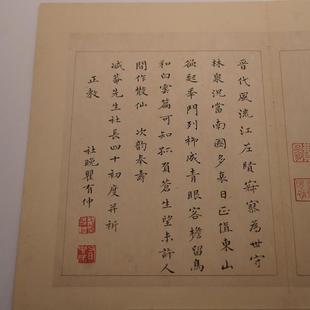 晉代風流江左賢為世守
林泉況當南國多哀日正值東山
欲起年門列柳成青眼客檐留鳥
和白雲篇可知孤負蒼生望未許人
間作散仙 次韵奉壽
先生社長四十初度并祈
正教
社晚瞿有仲